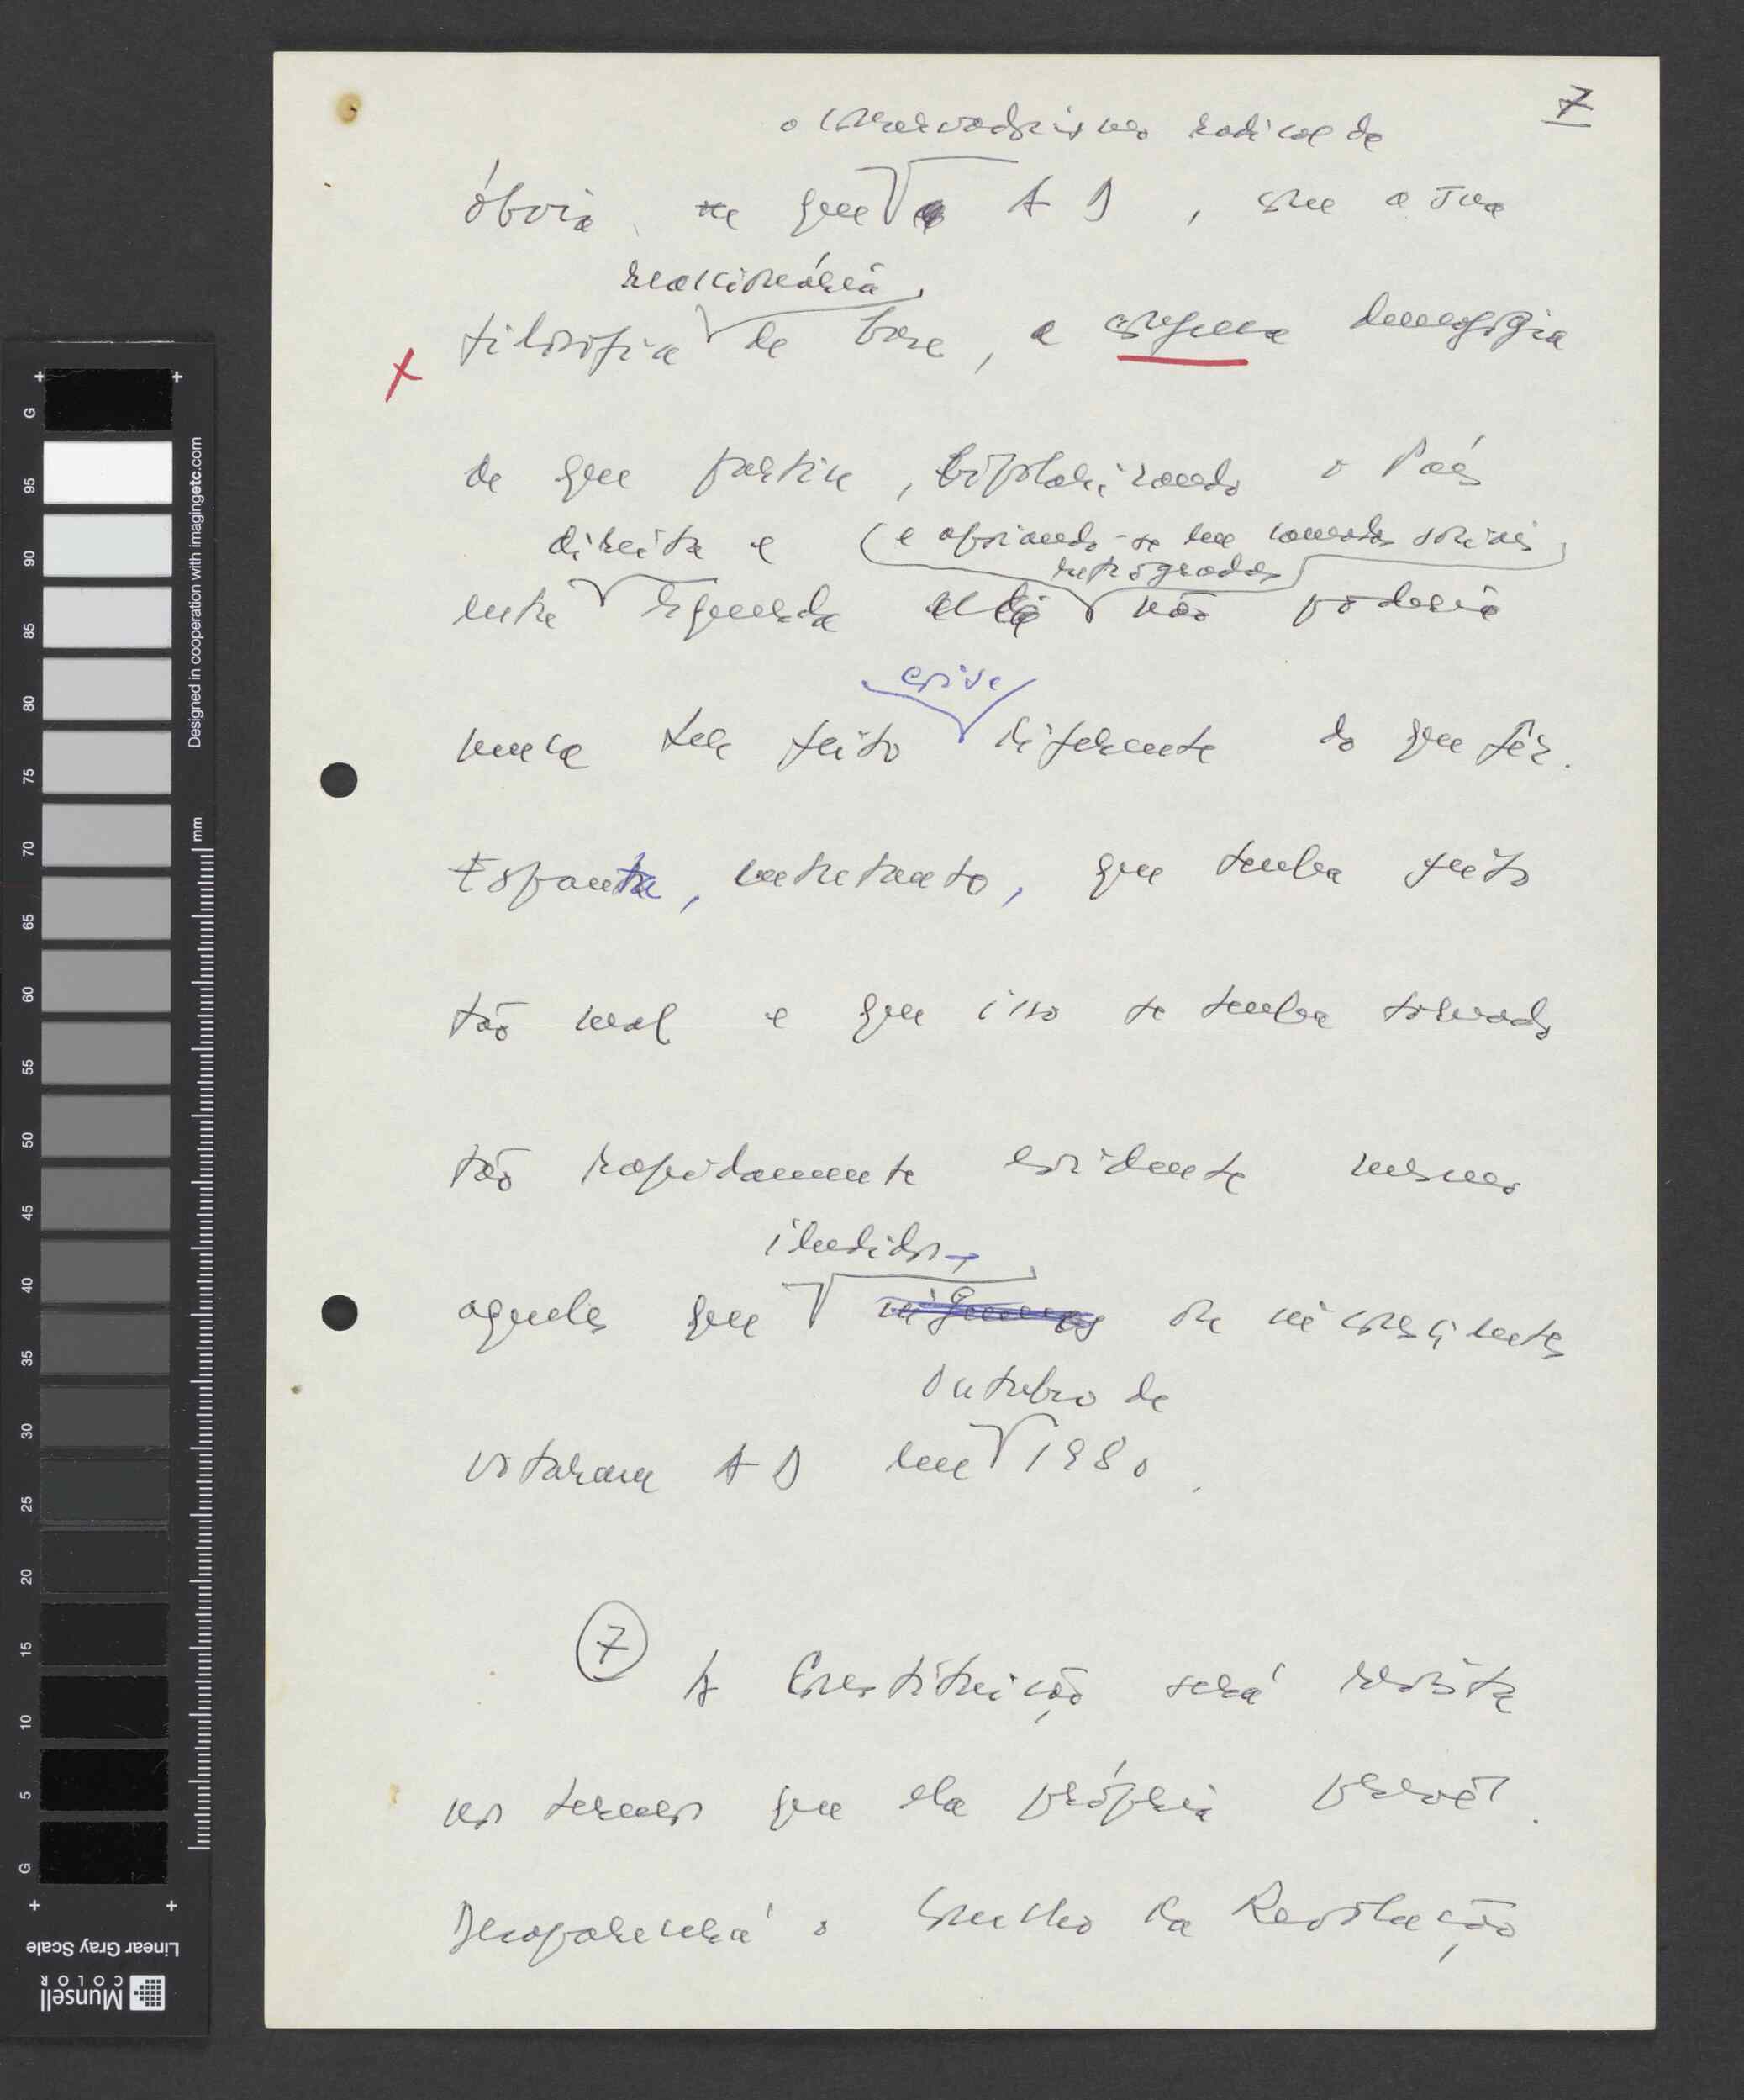 7
o conservadorismo radical da
óbvia que AD, com a sua
reaccionária
filosofia de base, a confusa demagogia
de que partiu, bipolarizando o País
direita e (e apoiando-se em camadas sociais
retrógradas
entre esquerda não poderia
coisa
nunca ter feito diferente do que fêz.
Espanta, entretanto, que tenha feito
tão mal e que isso se tenha tornado
tão rapidamente evidente mesmo
iludidos
aqueles que ou inconscientes
Outubro de
votaram AD em 1980.
7 A Constituição será revista
nos termos que ela própria prevê.
Desaparecerá o Conselho da Revolução
G
95
90
85
80
75
70
65
60
55
50
45
40
35
30
25
20
15
10
5
G
mm
Designed in cooperation with imagingetc.com
Linear Gray Scale
Munsell
COLOR